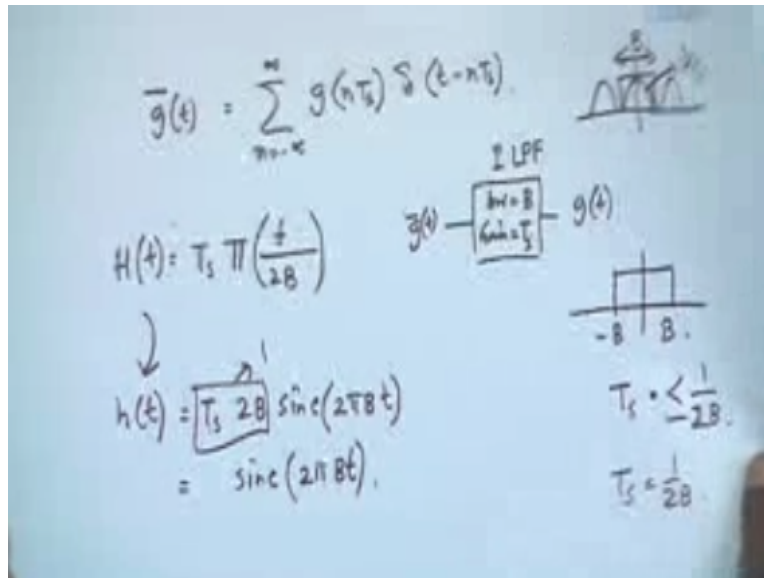 g̅(t) = ∑ g(nTs) δ(t-nTs).
∞
n=-∞
B
I LPF
bw = B
Gain = Ts
g̅(t)
g(t)
H(f) = Ts Π(f/2B)
-B B.
1
h(t) = Ts 2B sinc(2πBt)
= sinc(2πBt).
Ts ≤ 1/2B.
Ts = 1/2B.